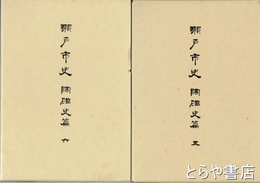 瀬戸市史 陶磁史篇 六
瀬戸市史 陶磁史篇 五
とらや書店